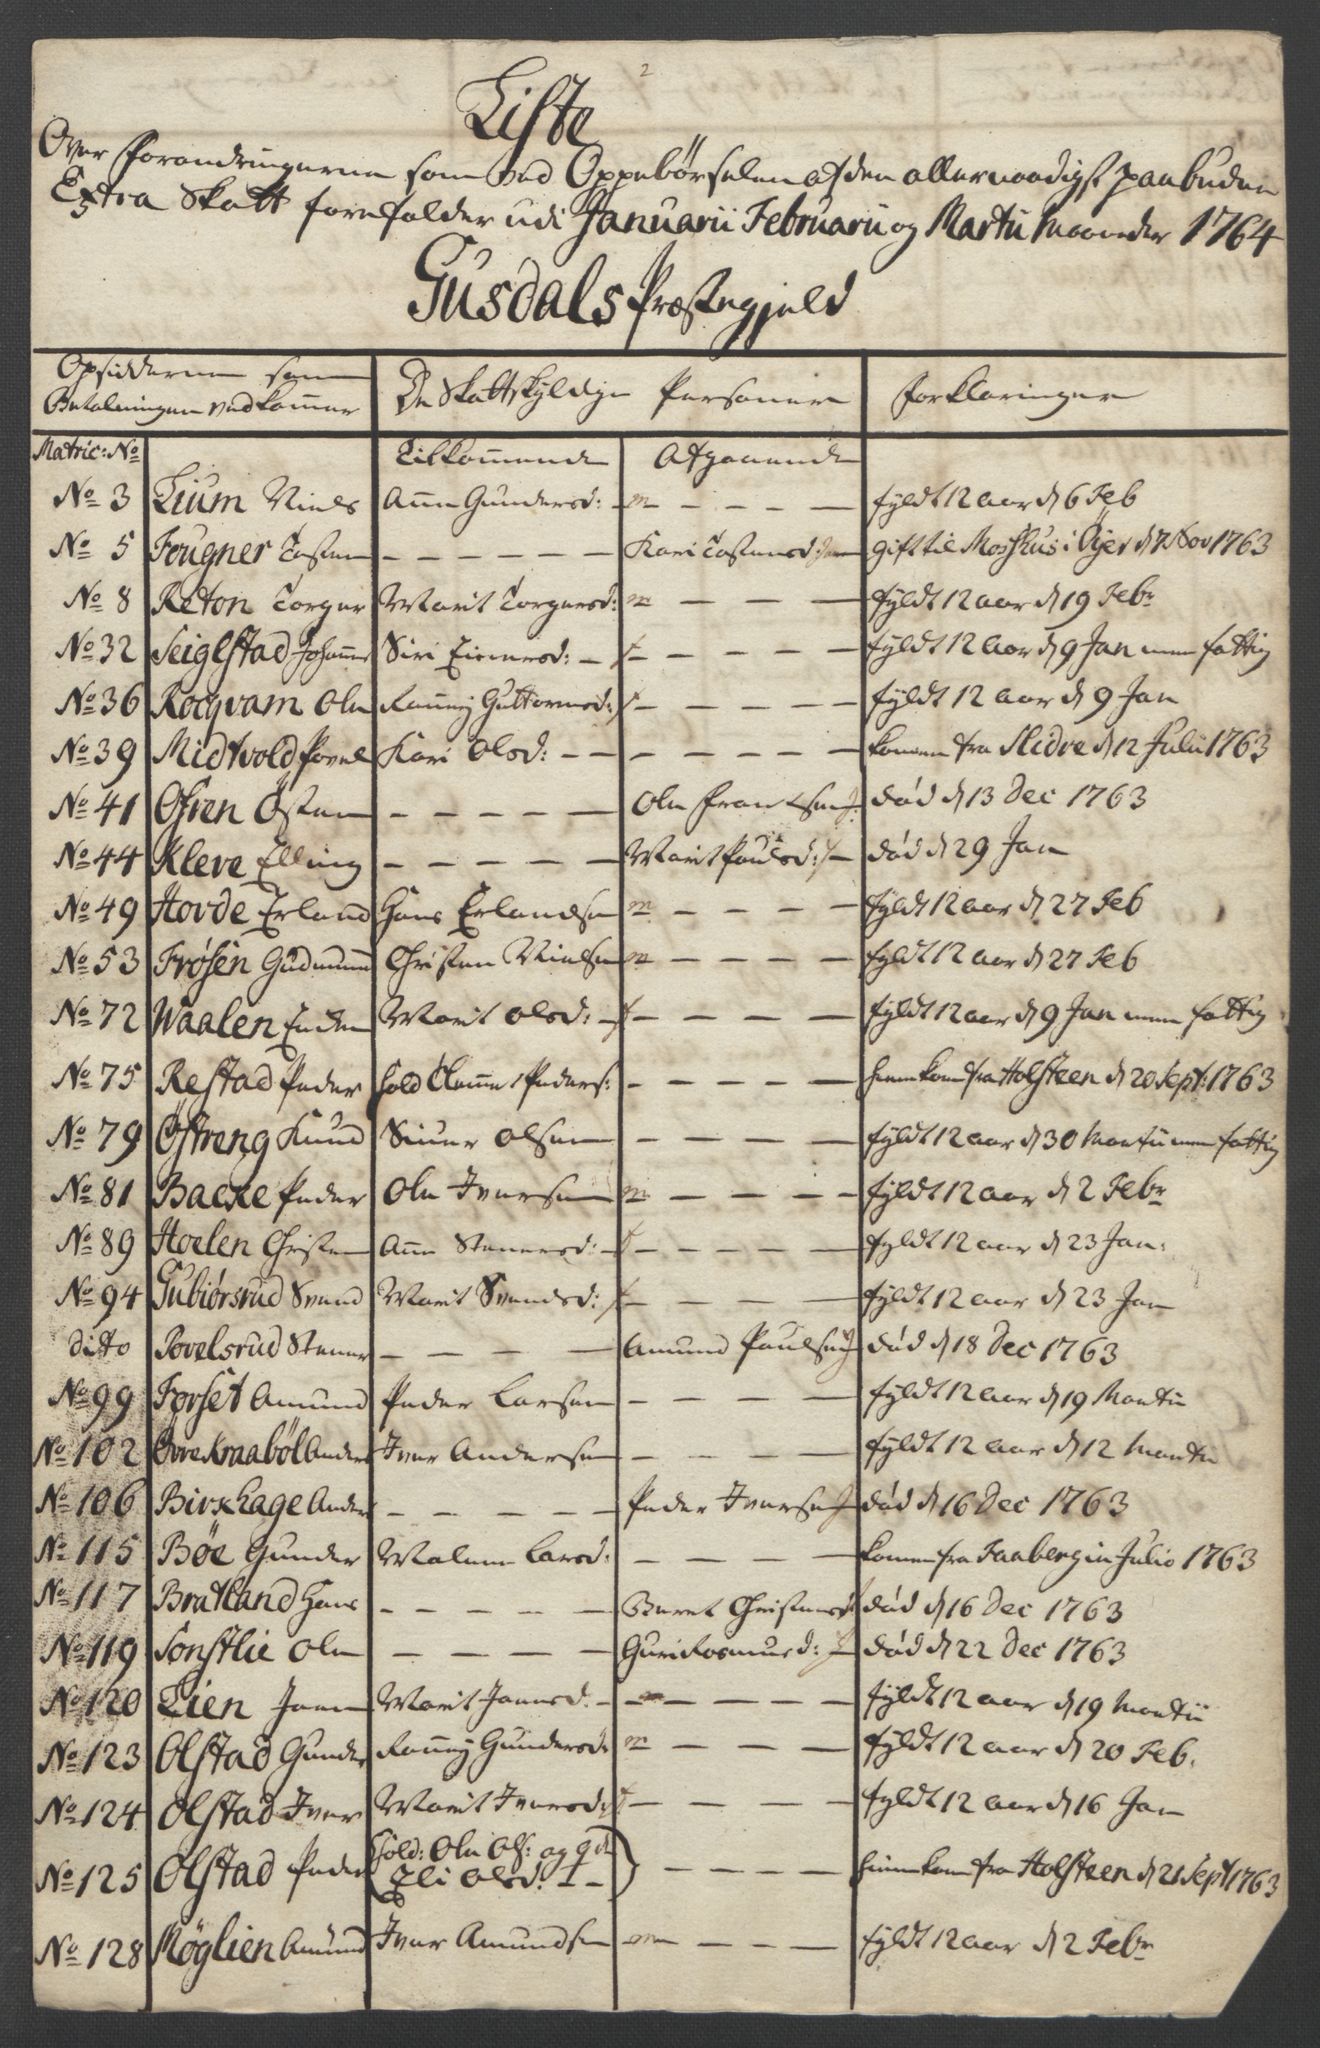 2
Liste
Over Forandringerne som ved Oppebörselen af den allernaadigst paabudne
Extra Skatt forefalder udi Januarii Februarii og Martii Maaneder 1764
Gusdals Præstegjeld
Opsidderne som Betalningen vedkommer | De Skattskyldige Personer | Forklaringer
Matric: No | Tilkommende | Afgaaende
No 3 Lium Niels | Anne Gundersd: m - - - - | fyldt 12 aar d 6 Feb
No 5 Fougner Tosten | - - - - - | Kari Tostensd: | gift til Moshus i Öyer d 7 Nov 1763
No 8 Reton Torger | Marit Torgersd: m - - - | fyldt 12 aar d 19 Febr
No 32 Seiglstad Johannes | Siri Einersd: - - - - - | fyldt 12 aar d 9 Jan men fattig
No 36 Rocqvam Ole | Ronnoy Guttormsd: - - - - | fyldt 12 aar d 9 Jan
No 39 Midtvold Povel | Kari Olsd: - - - - - - | kommen fra Slidre d 12 Julii 1763
No 41 Ofren Østen | - - - - - | Ole Frantsen | død d 13 Dec 1763
No 44 Kleve Elling | - - - - - | Marit Poulsd: | død d 29 Jan
No 49 Hovde Erland | Hans Erlandsen m - - - - | fyldt 12 aar d 27 Feb
No 53 Frøsen Gudmund | Christen Nielsen m - - - - | fyldt 12 aar d 27 Feb
No 72 Waalen Enden | Marit Olsd: - - - - - | fyldt 12 aar d 9 Jan men fattig
No 75 Restad Peder | Sold Clemmet Peders: - - - - - | hiemkom fra Holsteen d 20 Sept: 1763
No 79 Øfreng Knud | Siver Olsen - - - - - | fyldt 12 aar d 30 Martii men fattig
No 81 Backe Peder | Ole Iversen m - - - - | fyldt 12 aar d 2 Febr
No 89 Hoelen Christen | Anne Stenersd: - - - - - | fyldt 12 aar d 23 Jan:
No 94 Gubiørsrud Svend | Marit Svendsd: - - - - | fyldt 12 aar d 23 Jan
ditto Povelsrud Stener | - - - - | Amund Paulsen | død d 18 Dec 1763
No 99 Forset Amund | Peder Larsen - - - - | fyldt 12 aar d 19 Martii
No 102 Øvre Kraabøl Anders | Iver Andersen - - - - | fyldt 12 aar d 12 Martii
No 106 Birkhage Anders | - - - - - | Peder Iversen | død d 16 Dec 1763
No 115 Bøe Gunder | Malene Larsd: - - - - | kommen fra Faaberg in Julio 1763
No 117 Bratland Hans | - - - - - | Beret Christensd | død d 16 Dec 1763
No 119 Sønstlie Ole | - - - - | Guri Rasmusd: | død d 22 Dec 1763
No 120 Lien Joen | Marit Joensd: - m - - - - | fyldt 12 aar d 19 Martii
No 123 Olstad Gunder | Ronnoy Gundersd: m - - - | fyldt 12 aar d 20 Feb.
No 124 Olstad Iver | Marit Iversd: - - - - - | fyldt 12 aar d 16 Jan
No 125 Olstad Peder | Sold: Ole Ols: og q de Eli Olsd: 1 - - - - - | hiemkom fra Holsteen d 21 Sept 1763
No 128 Møglien Amund | Iver Amundsen m - - - | fyldt 12 aar d 2 Febr